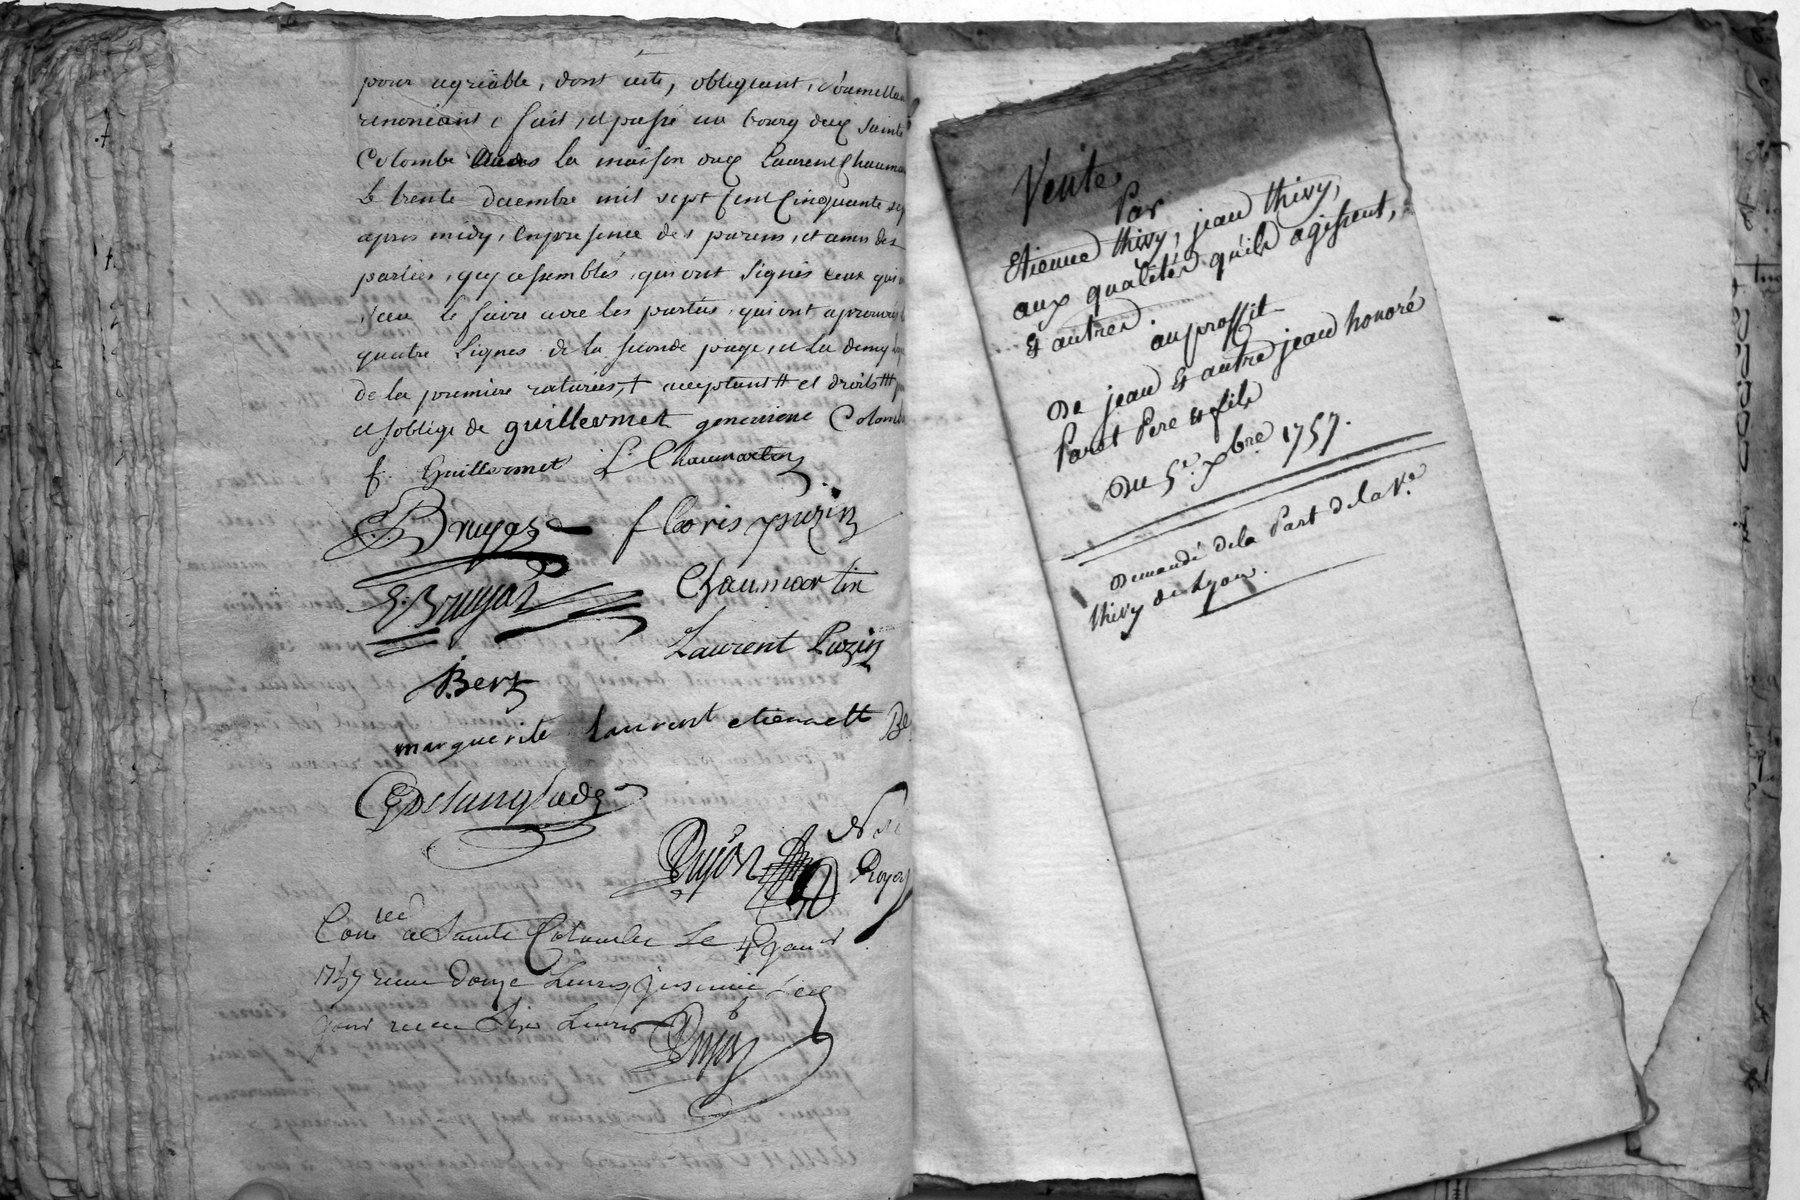 pour agréable, dont acte, obligeant, soumettant
renonceant, fait, et passé au bourg dud Sainte
Colombe dans la maison dud Laurent Chaumar
Le trente decembre mil sept cent Cinquante sep
apres midy, En presence des parens, et amis des
parties, icy assemblés, qui ont signés ceux qui
sceu le faire avec les parties, qui ont aprouvés
quatre Lignes de la seconde page, et La demy
de la premiere raturées, + acceptant # et droits #
et soblige de guillermet genevieve Colomb
f. Guillermet L. Chaumartin
Bruyas floris puzin
Bruyas Chaumartin
Laurent Puzin
Bert
marguerite Laurent etiennett Be
Delanglade
Dujon
Royal
Con a Sainte Colombe Le 4 Janr
reçu Douze Livres
pour Six Livres
Dujon
Vente
Par
Etienne thivy, jean thivy,
aux qualités qu'ils agissent,
Et autres
au proffit
De jean Et autre jean honoré
Paret Pere et fils
Du 5e. Xbre 1757.
Demandé de la Part de la Ve
thivy de Lyon.